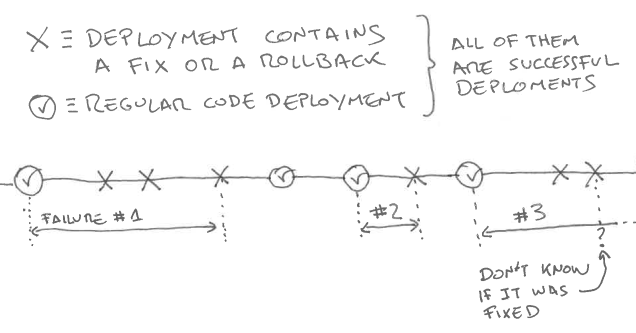 X ≡ DEPLOYMENT CONTAINS
A FIX OR A ROLLBACK
✓ ≡ REGULAR CODE DEPLOYMENT
ALL OF THEM
ARE SUCCESSFUL
DEPLOMENTS
FAILURE #1
#2
#3
?
DON'T KNOW
IF IT WAS
FIXED